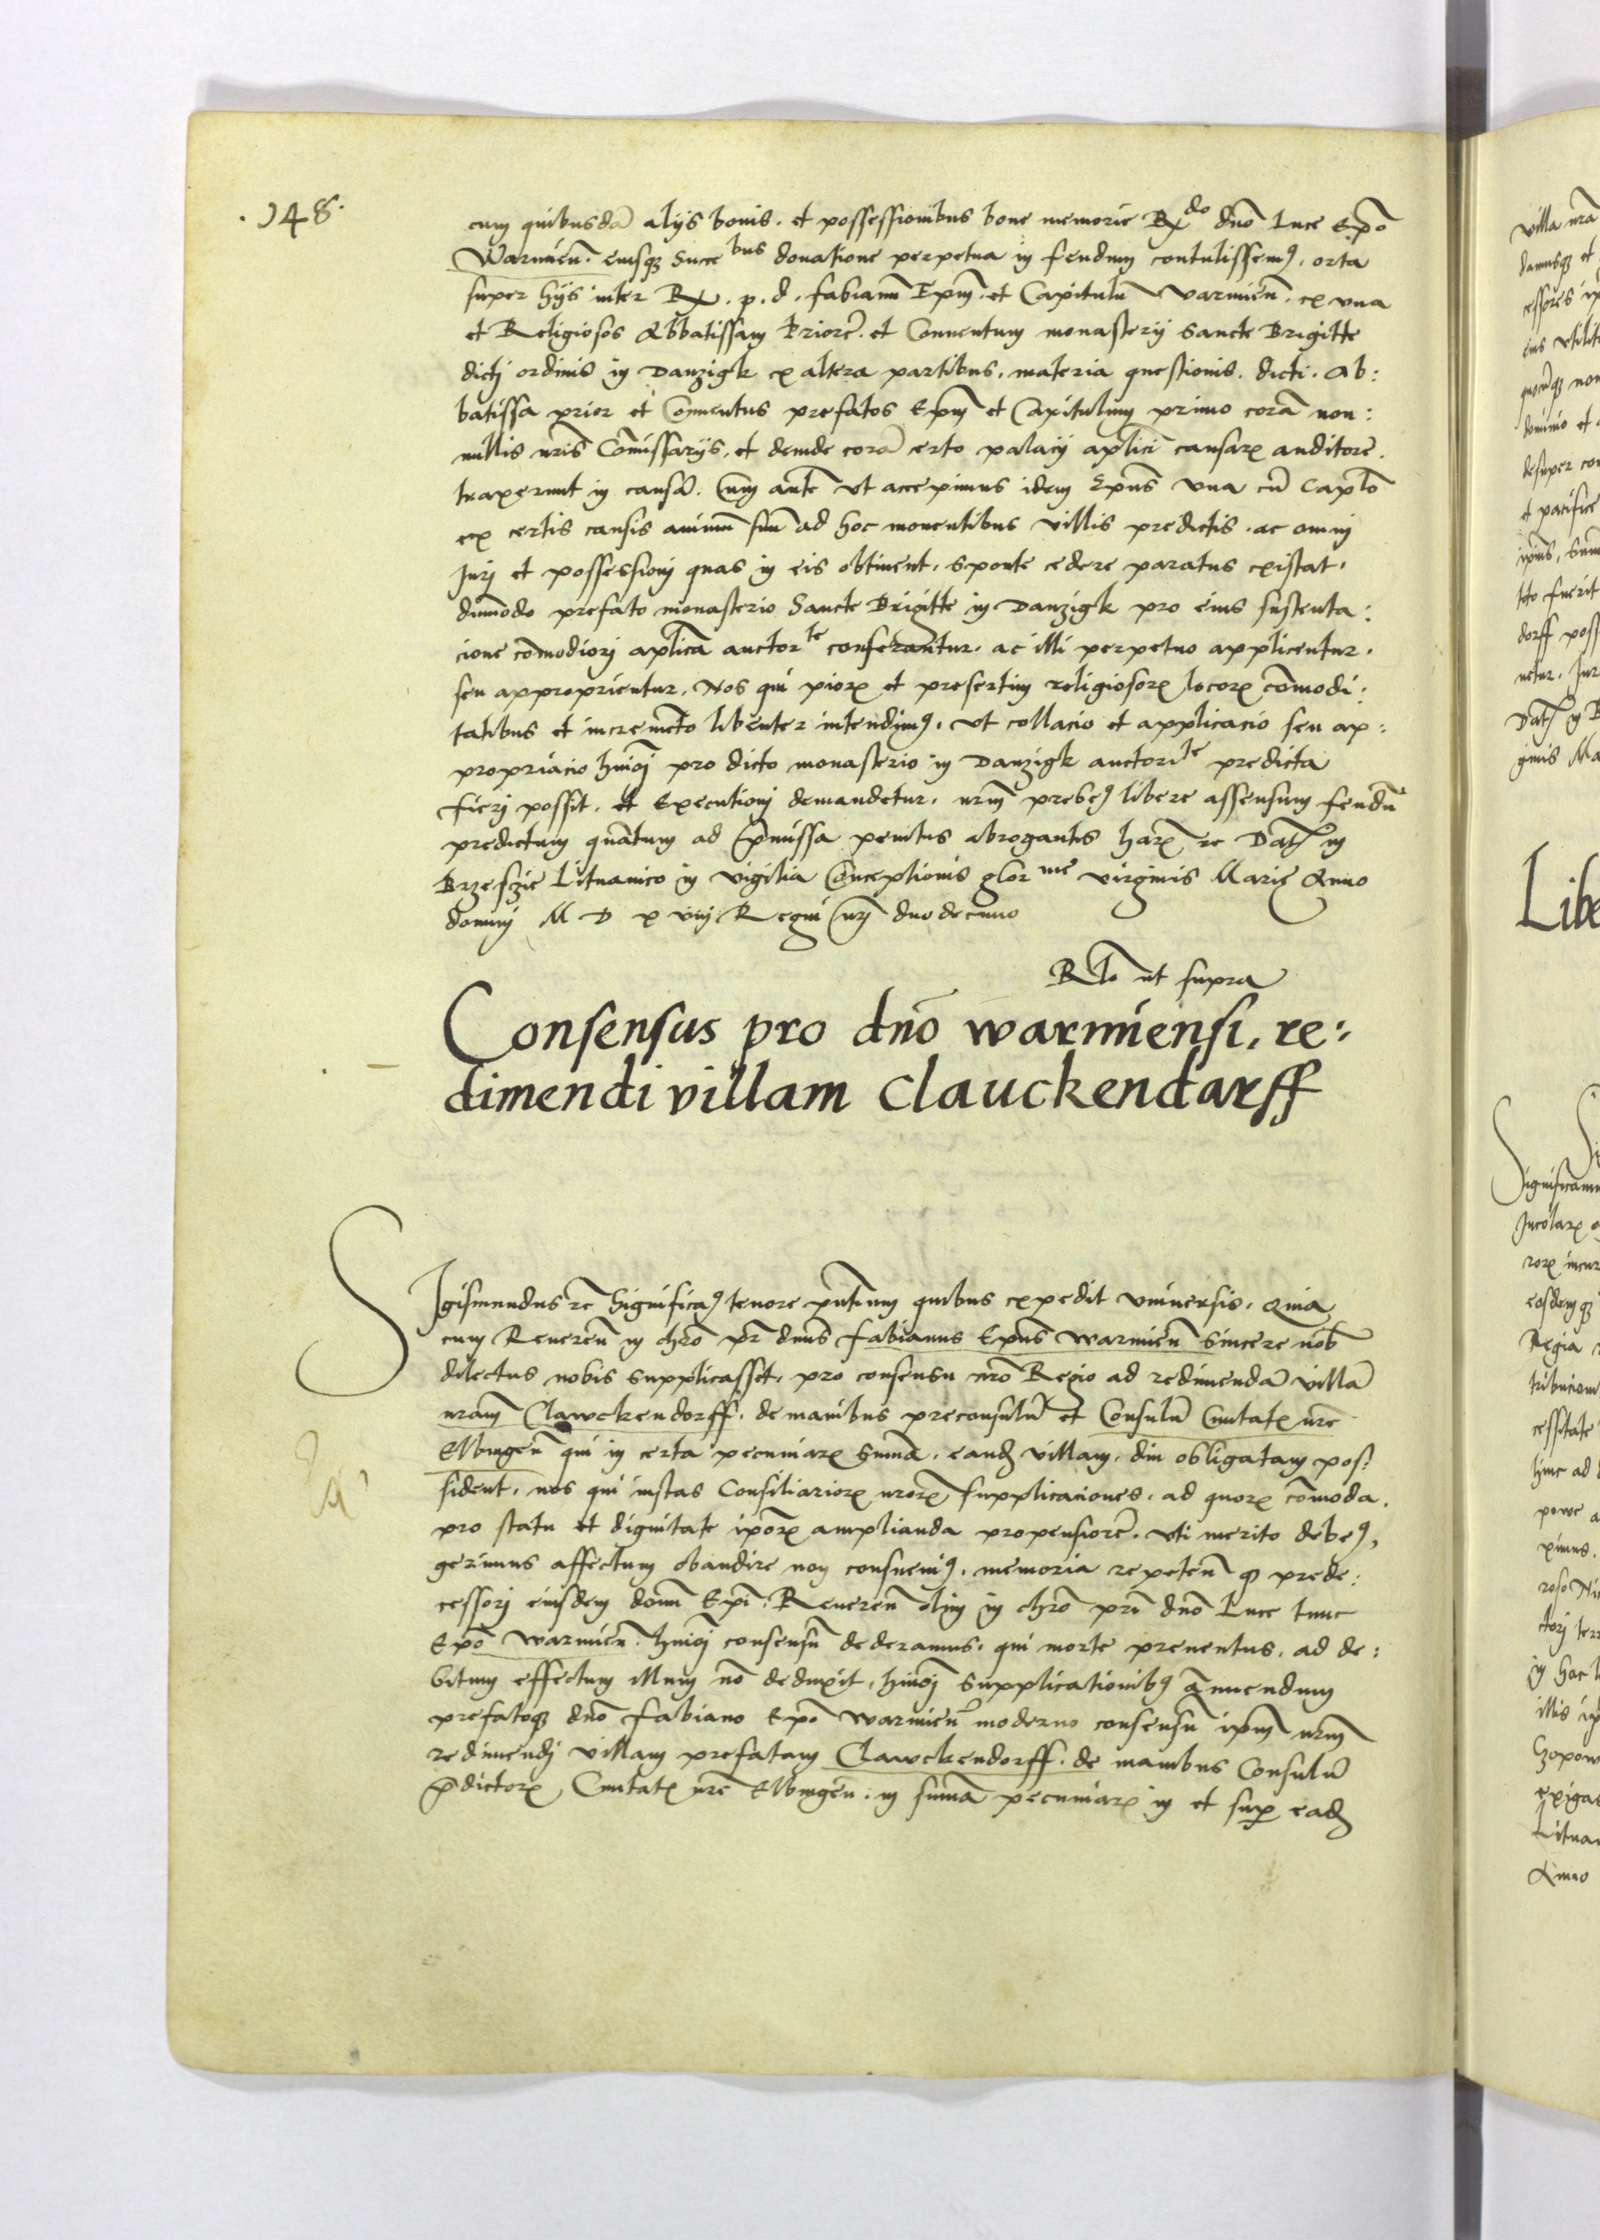 .148.
cum quibusdā alijs bonis. et possessionibus bone memorie Rdo dno Luce Epo
Warmien. eiusqz Succebus donatione perpetua in feudum contulissem9. orta
super hijs inter R. p. d. fabianū Epm et Capitulū Varmien. ex vna
et Religiosos Abbatissam Priorē. et Conuentum monasterij Sancte Brigitte
dictj ordinis in Danzigk ex altera partibus. materia questionis. dicti. Ab:
batissa prior et Conuentus prefatos Epm et Capitulum primo corā non:
nullis nris Comissarijs. et deinde corā certo palacij aplici causarz auditore.
traxerunt in causā. Cum aute vt accepimus idem Epus vna cū Caplo
ex certis causis animū suū ad hoc mouentibus villis predictis. ac omnj
Jurj et possessionj quas in eis obtinent. sponte cedere paratus existat.
dūmodo prefato monasterio Sancte Brigitte in Danzigk pro eius sustenta:
cione comodiorj aplica auctorte conferantur. ac illi perpetuo applicentur.
seu approprientur. Nos qui piorz et presertim religiosorz locorz comodi:
tatibus et incremēto libenter intendim9. vt collacio et applicacio seu ap:
propriacio hmoj pro dicto monasterio in Danzigk auctorite predicta
fierj possit. et Executionj demandetur. nrm prebe9 libere assensum feudū
predictum quātum ad pmissa penitus abrogantes harz rc Datz in
Brzeszcie Lituanico in vigilia Conceptionis glorme virginis Marie Anno
dominj M D x viij Regni nrj duodecimo
Rlo ut supra
Consensus pro dno warmiensi, re:
dimendi villam Clauckendarff
SIgismundus rc Significa9 tenore pntium quibus expedit vniuersis. Quia
cum Reueren in chro pr dnus fabianus Epus warmien sincere nob
dilectus nobis supplicasset. pro consensu nro Regio ad redimendā villā
nram Clawckendorff. de manibus preconsulū et Consulū Ciuitatz nre
Elbingen qui in certa pecuniarz sumā. eandz villam. diu obligatam pos:
sident. nos qui iustas Consiliariorz nrorz supplicaciones. ad quorz comoda.
pro statu et dignitate iporz amplianda propensiorē. vti merito debe9,
gerimus affectum obaudire non consueuim9. memoria repeten qd prede:
cessorj eiusdem domi Epi. Reueren olim in chro pri dno Luce tunc
Epo warmien. hmoj consensū dederamus. qui morte preuentus. ad de:
bitum effectum illum no deduxit. hmoj supplicationib9 ānuendum
prefatoqz dno fabiano Epo warmien moderno consensū ipm nrm
redimendj villam prefatam Clawckendorff. de manibus Consulū
pdictorz Ciuitatz nre Elbingen. in sumā pecuniarz in et sup eadz
villa nrā
damusqz et
Libe
Significamu
Jncolarz
eosdemqz
Regia
cessitate
Lituan
Anno